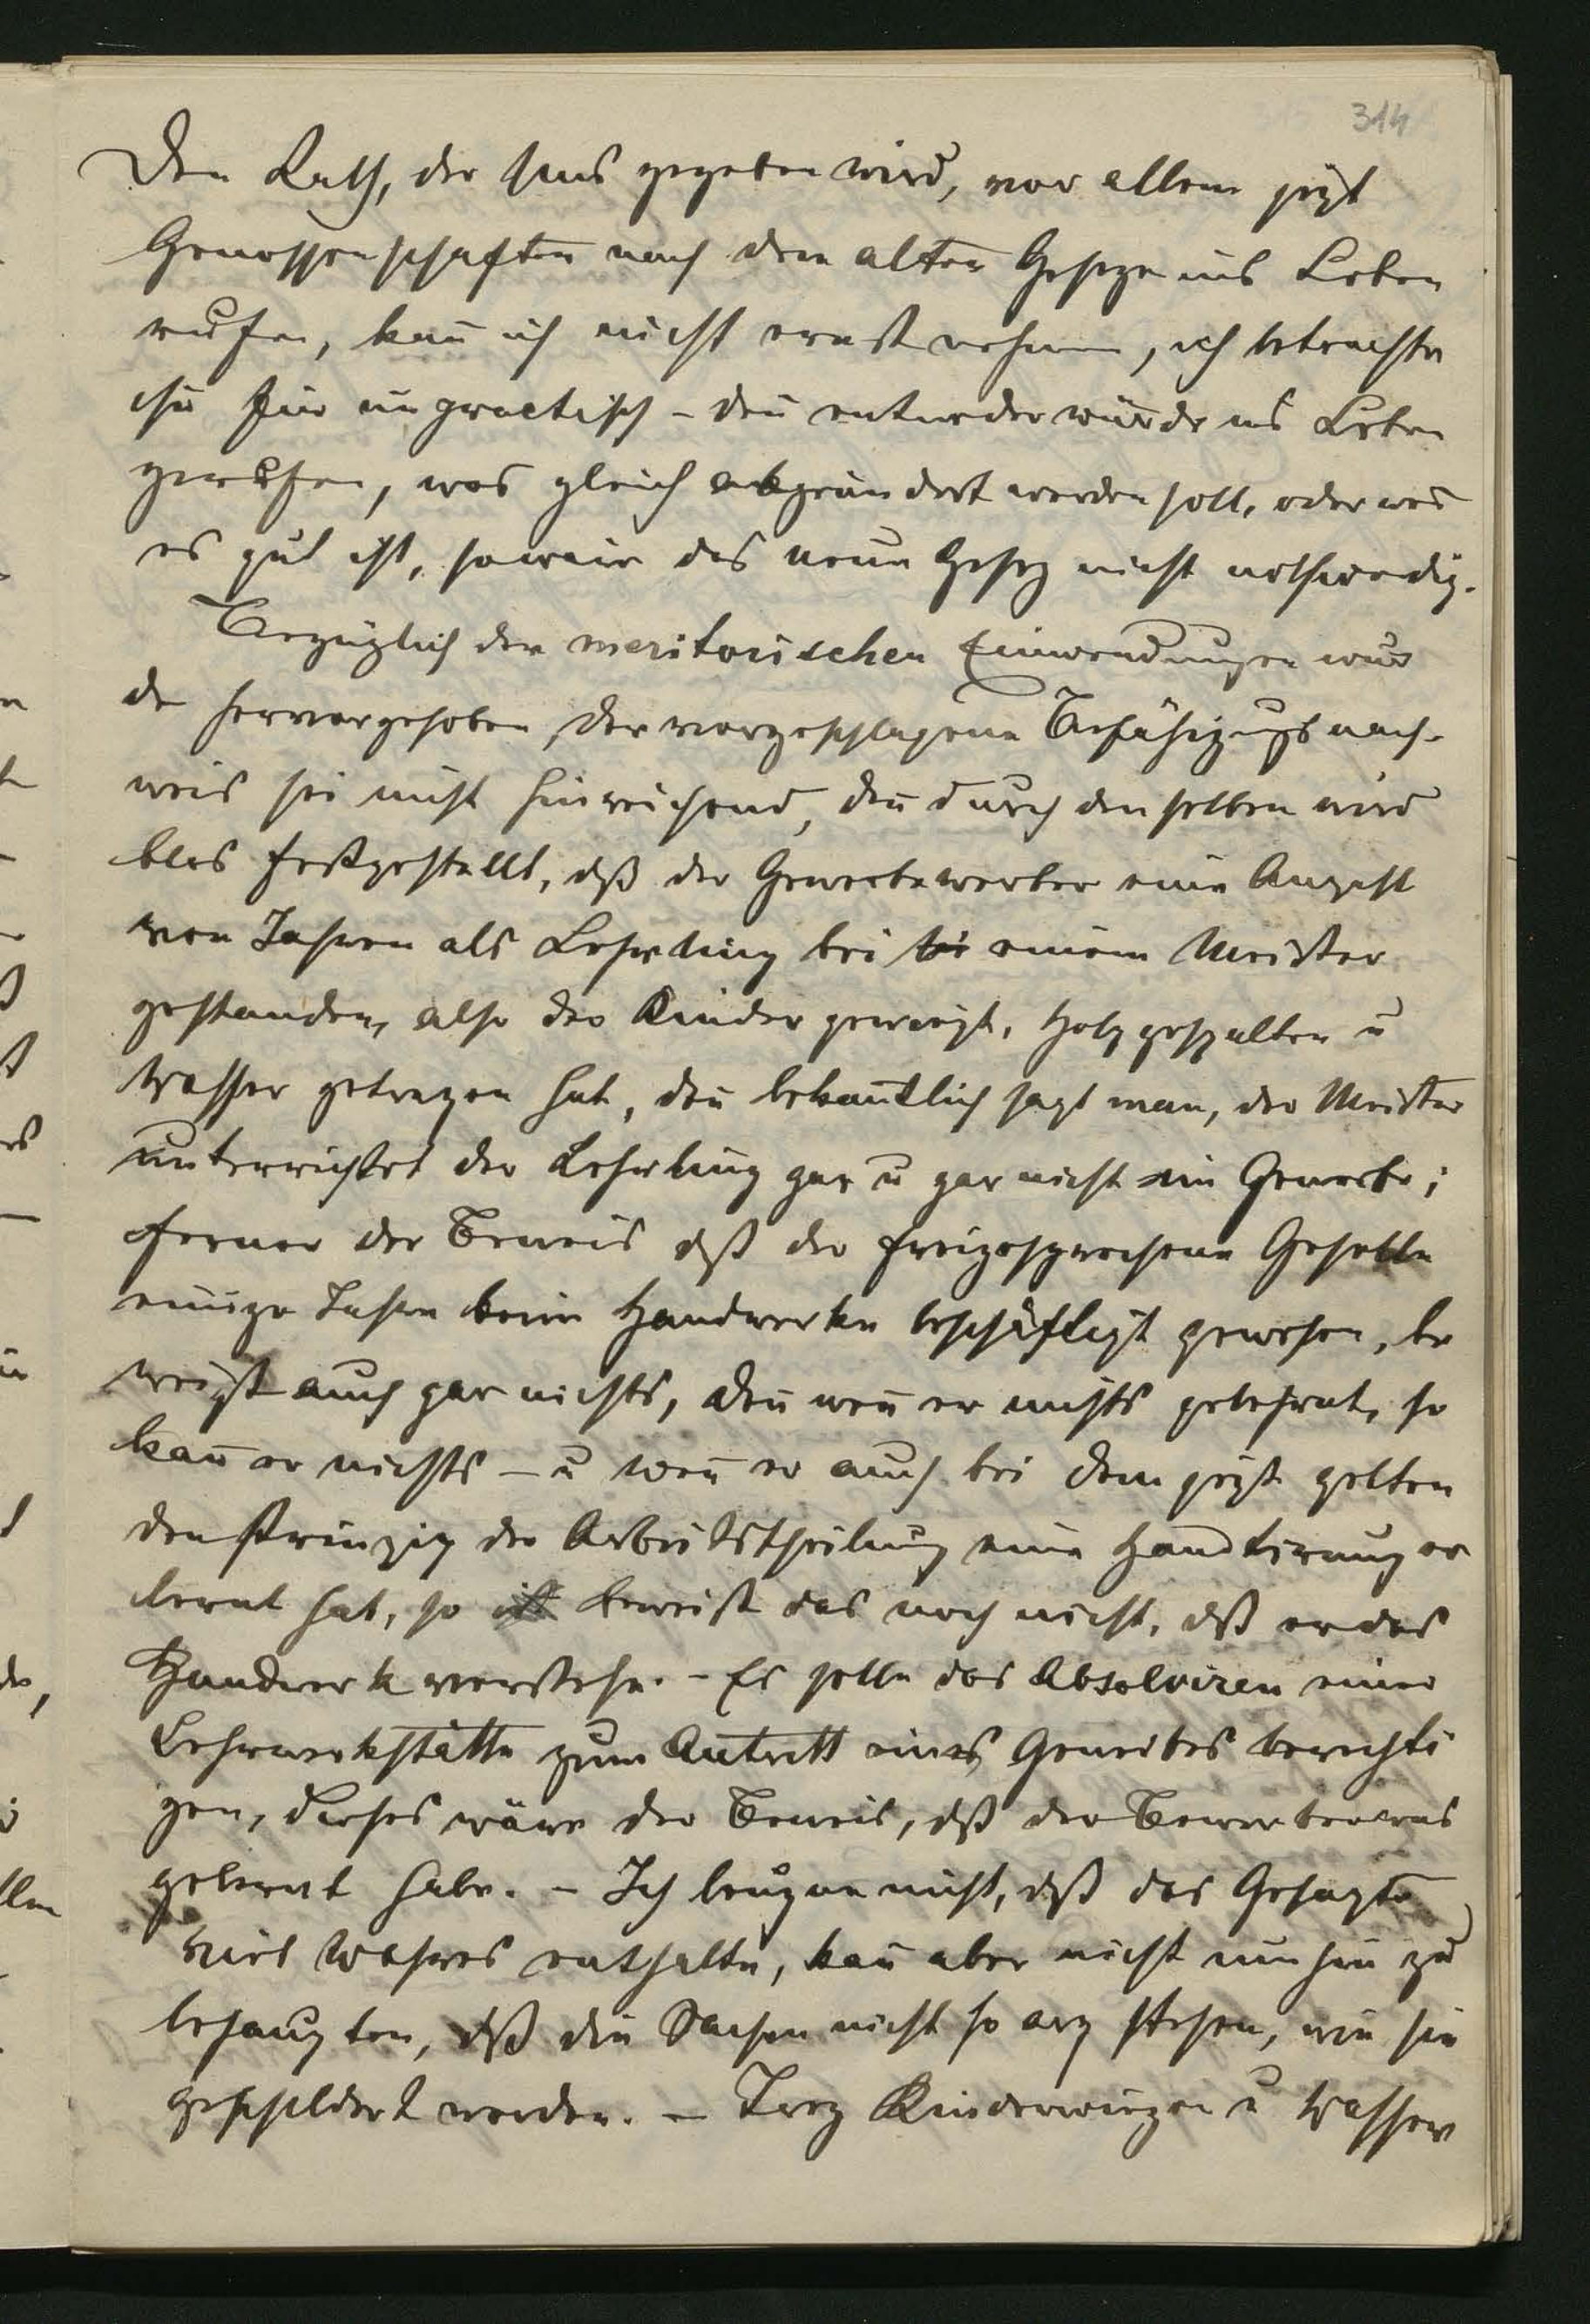 314
Den Rath, der uns gegeben wird, vor allem jezt
Genossenschaften nach dem alten Geseze ins Leben
rufen, kan̄ ich nicht ernst nehmen, ich betrachte
ihn für unpractisch – den̄ entweder würde ins Leben
gerufen, was gleich abgeändert werden soll, oder wen̄
es gut ist, so wäre das neue Gesez nicht nothwendig.
Bezüglich der meritorischen Einwendungen wur
de hervorgehoben, der vorgeschlagene Befähigungsnach-
weis sei nicht hinreichend, den̄ durch denselben wird
blos festgestellt, dß der Gewerbewerber eine Anzahl
von Jahren als Lehrling bei bei einem Meister
gestanden, also die Kinder gewiegt, Holz gespalten u
Wasser getragen hat, den̄ bekan̄tlich sagt man, der Meister
unterrichtet den Lehrling gar u gar nicht im Gewerbe;
ferner der Beweis dß der freigesprochene Geselle
einige Jahre beim Handwerke beschäftigt gewesen, be
weißt auch gar nichts, den̄ wen̄ er nichts gelehrnt, so
kan̄ er nichts – u wen̄ er auch bei dem jezt gelten
den Prinzip der Arbeitstheilung eine Handtirung er
lernt hat, so ist beweist das noch nicht, dß er das
Handwerk verstehe. – Es solle das Absolviren einer
Lehrwerkstätte zum Antritt eines Gewerbes berechti
gen, dieses wäre der Beweis, dß der Bewerber was
gelernt habe. – Ich leugne nicht, dß das Gesagte
viel Wahres enthalte, kan̄ aber nicht umhin zu
behaupten, dß die Sachen nicht so arg stehen, wie sie
geschildert werden. – Troz Kinderwiegen u Wasser